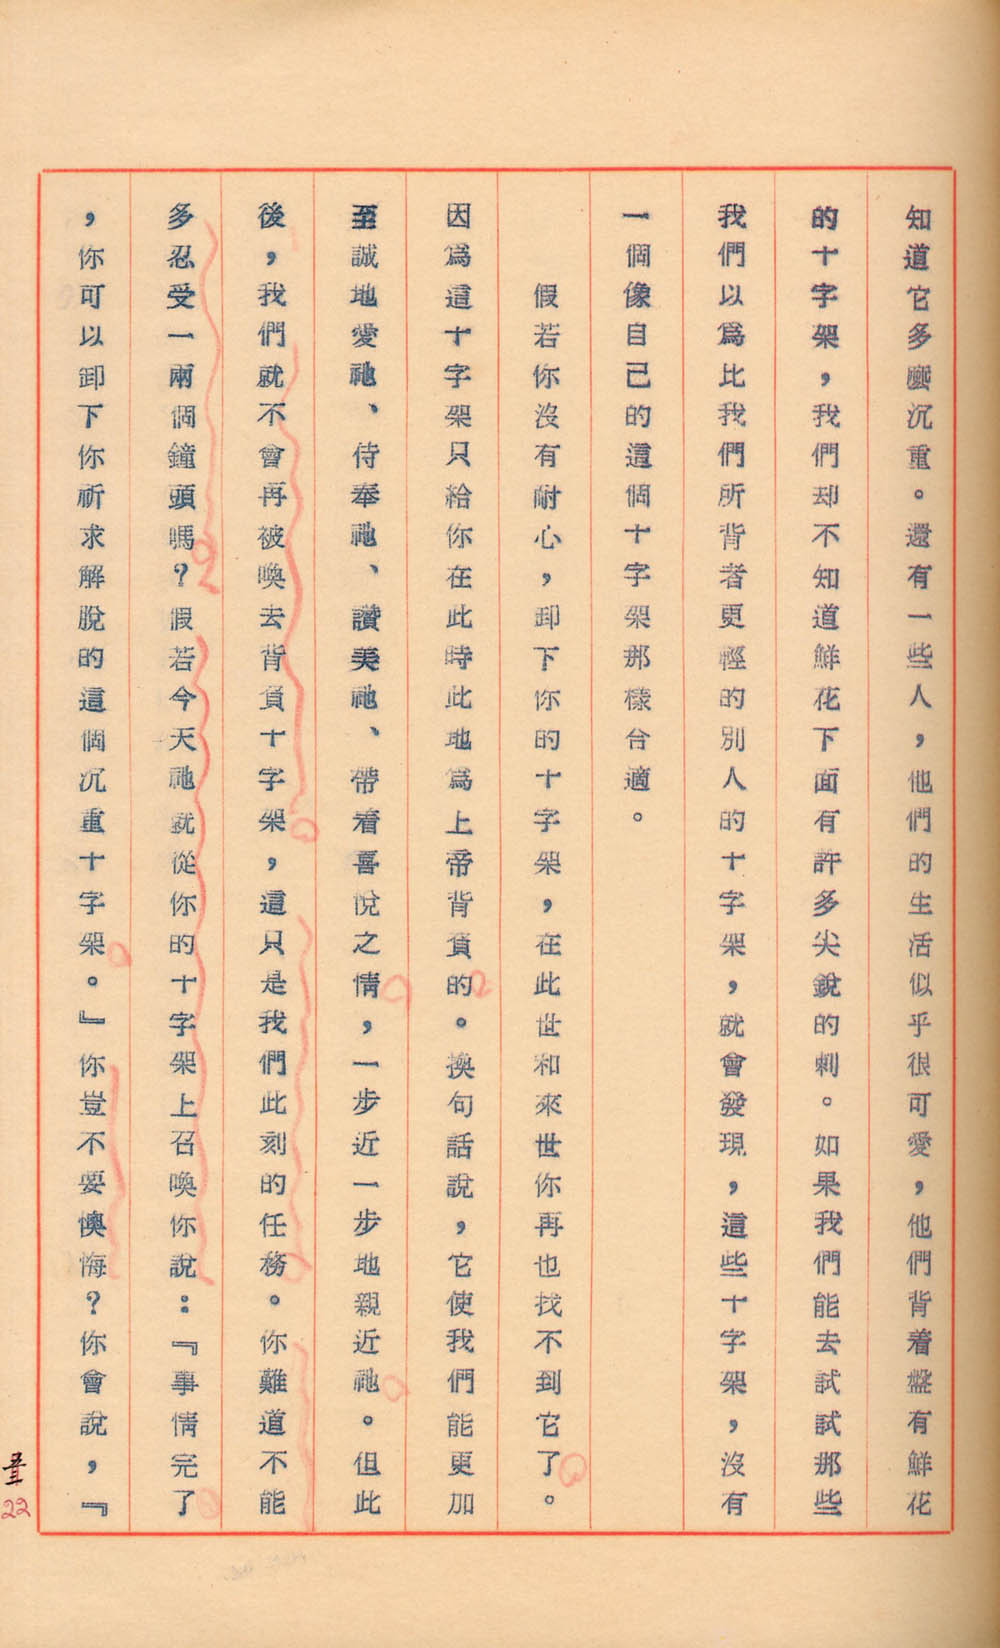 知道它多麼沉重。還有一些人，他們的生活似乎很可愛，他們背着盤有鮮花
的十字架，我們却不知道鮮花下面有許多尖銳的刺。如果我們能去試試那些
我們以爲比我們所背者更輕的別人的十字架，就會發現，這些十字架，沒有
一個像自己的這個十字架那樣合適。
假若你沒有耐心，卸下你的十字架，在此世和來世你再也找不到它了。
因爲這十字架只給你在此時此地爲上帝背負的。換句話說，它使我們能更加
至誠地愛祂、侍奉祂、讚美祂、帶着喜悅之情，一步近一步地親近祂。但此
後，我們就不會再被喚去背負十字架，這只是我們此刻的任務。你難道不能
多忍受一兩個鐘頭嗎？假若今天祂就從你的十字架上召喚你說：『事情完了
，你可以卸下你祈求解脫的這個沉重十字架。』你豈不要懊悔？你會說，『
22